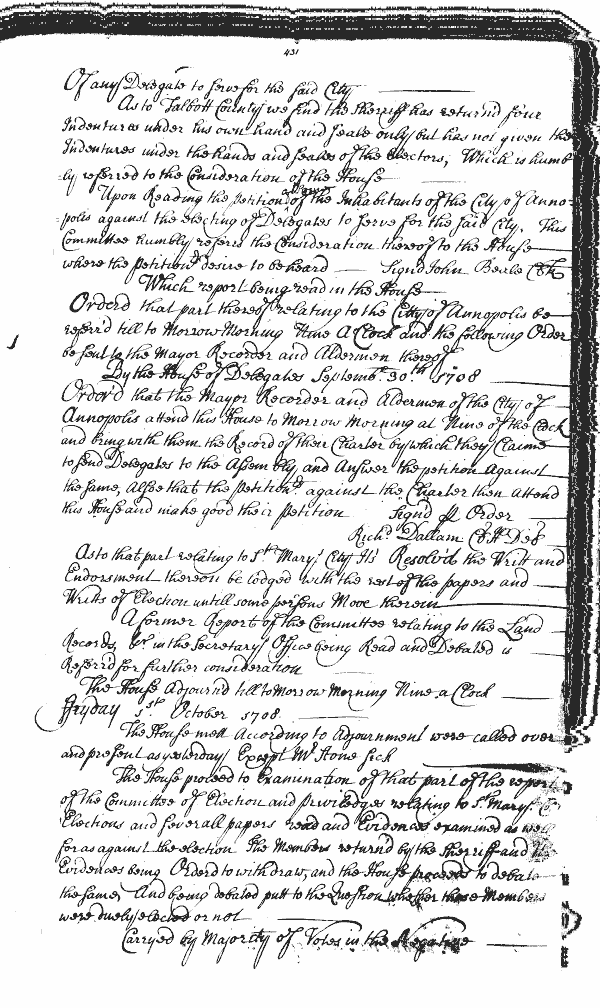 431
Of any Delegate to serve for the said City
As to Talbott County we find the Sherriff has return'd four
Indentures under his own hand and seale only but has not given the
Indentures under the hands and seales of the Electors, Which is humb
=ly referred to the Consideration of the House
Upon Reading the Petition of the Inhabitants of the City of Anno=
=polis against the electing of Delegates to serve for the said City. This
Committee humbly referrs the Consideration thereof to the House
where the Petitionrs desire to be heard Signd John Beale Clk
Which report being read in the House
Orderd that part thereof relating to the City of Annopolis be
referr'd till to Morrow Morning Nine A Clock and the following Order
be sent to the Mayor Recorder and Aldermen thereof
By the House of Delegates Septembr. 30th. 1708
Order'd that the Mayor Recorder and Aldermen of the City of
Annopolis attend this House to Morrow Morning at Nine of the Clock
and bring with them the Record of their Charter by which they Claime
to send Delegates to the Assembly, and Answer the petition Against
the same, Alsoe that the Petitionrs. against the Charter then attend
this House and make good their Petition Signd p Order
Richd. Dallam Cl Ho Del
As to that part relating to St. Marys City It's Resolv'd the Writt and
Endorsment thereon be lodged with the rest of the papers and
Writts of Election untill some persons Move therein
A former Report of the Committee relating to the Land
Records &c. in the Secretarys Office being Read and Debated is
Referr'd for further consideration
The House Adjourn'd till to Morrow Morning Nine a Clock
Fryday 1st. October 1708.
The House mett According to Adjournment were called over
and present as yesterday Except Mr Stone sick
The House proceed to Examination of that part of the report
of the Committee of Election and priviledges relating to St Marys
Elections and severall papers read and Evidences examined as well
for as against the election The Members return'd by the Sherriff and
Evidences being Orderd to withdraw, and the House proceeds to debate
the same, And being debated putt to the Question whether those Members
were duely elected or not
Carryed by Majority of Votes in the Negative